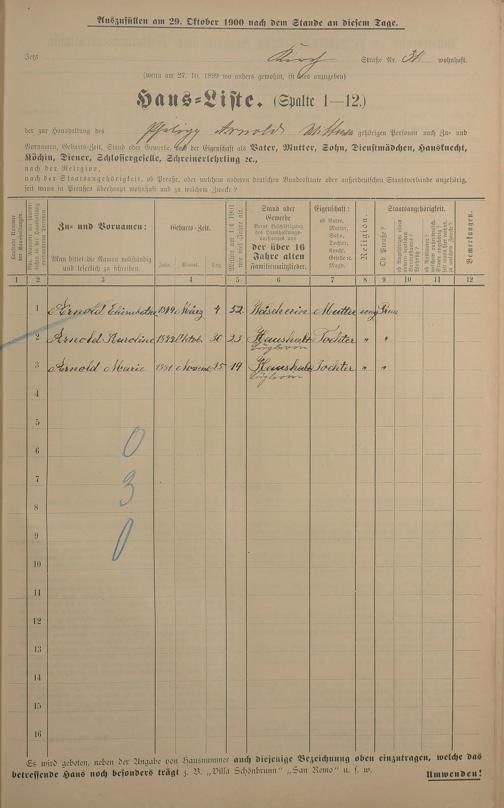 Auszufüllen am 29. Oktober 1900 nach dem Stande an diesem Tage.
Jetzt Kirch Straße Nr. 31 wohnhaft.
(wenn am 27. 10. 1899 wo anders gewohnt, ist dies anzugeben)
Haus-Liste. (Spalte 1—12.)
der zur Haushaltung des Philipp Arnolds Wittwe gehörigen Personen nach Zu- und
Vornamen, Geburts-Zeit, Stand oder Gewerbe, und der Eigenschaft als Vater, Mutter, Sohn, Dienstmädchen, Hausknecht,
Köchin, Diener, Schlossergeselle, Schreinerlehrling ec.,
nach der Religion,
nach der Staatsangehörigkeit, ob Preuße, oder welchem anderen deutschen Bundesstaate oder außerdeutschen Staatsverbande angehörig,
seit wann in Preußen überhaupt wohnhaft und zu welchem Zwecke?
Zu- und Vornamen:
Man bittet die Namen vollständig und leserlich zu schreiben.
Geburts-Zeit.
Jahr. Monat. Tag.
Stand oder Gewerbe
der über 16 Jahre alten Familienmitglieder.
Eigenschaft:
ob Vater, Mutter, Sohn, Tochter, Knecht, Geselle oder Magd.
Religion.
Staatsangehörigkeit.
Ob Preuße?
Bemerkungen.
1 2 3 4 5 6 7 8 9 10 11 12
1 Arnold 1849 März 4 52 Wäscherin Mutter evng
2 Arnold Karoline Oktob. 30 23 Haushalt Tochter " "
3 Arnold Marie 1881 Novem 25 19 Haushalt Tochter " "
4
5
6
7
8
9
10
11
12
13
14
15
16
0
3
0
Es wird gebeten, neben der Angabe von Hausnummer auch diejenige Bezeichnung oben einzutragen, welche das
betreffende Haus noch besonders trägt z. B. „Villa Schönbrunn" „San Remo" u. s. w. Umwenden!